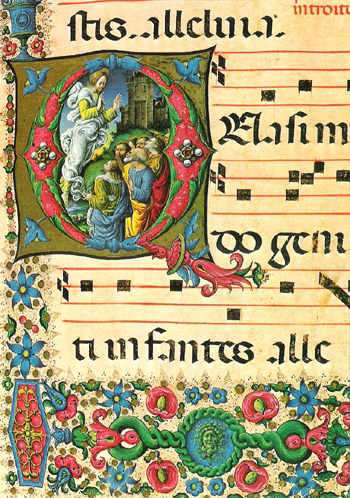 introitu
stis. alleluia.
QUasim
do geni
ti infantes alle